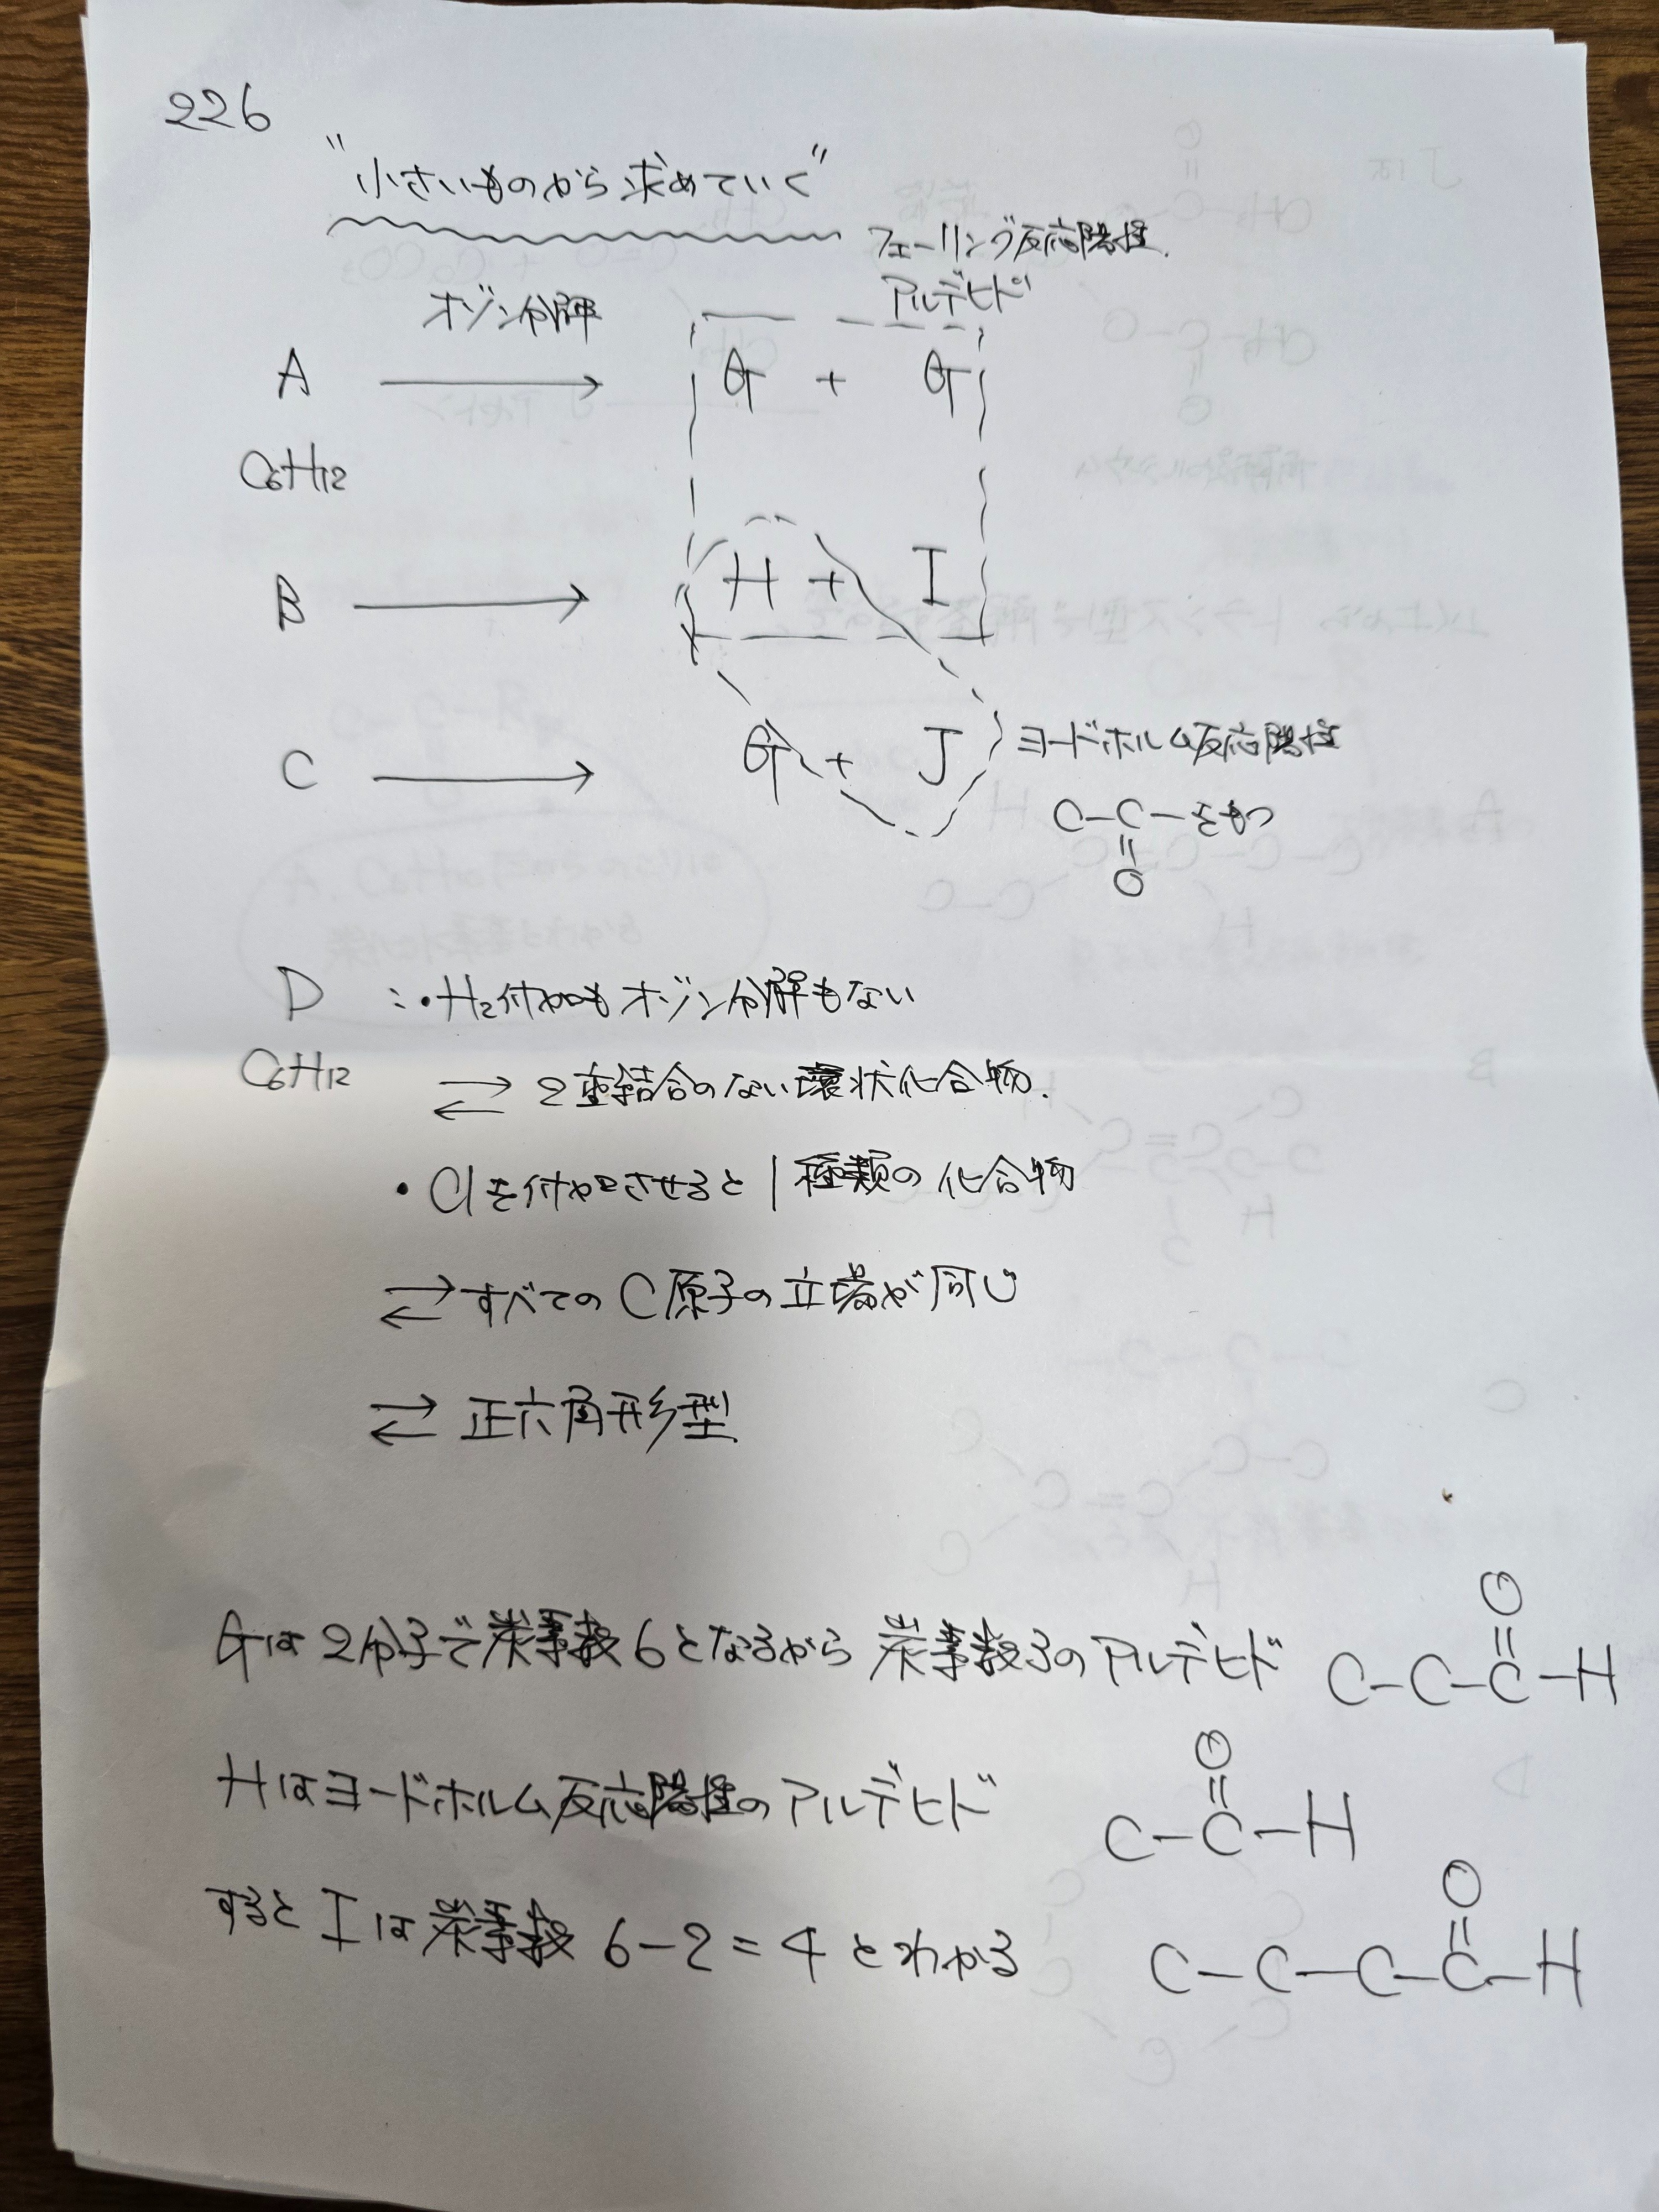 226
"小さいものから求めていく"
フェーリング反応陽性.
オゾン分解
アルデヒド
A → G + G
C6H12
B → H + I
C → G + J
ヨードホルム反応陽性
C-C-をもつ
=
O
D :・H2付加もオゾン分解もない
C6H12
⇄ 2重結合のない環状化合物.
・Clを付加させると1種類の化合物
⇄ すべてのC原子の立場が同じ
⇄ 正六角形型
Gは2分子で炭素数6となるから炭素数3のアルデヒド
O
=
C-C-C-H
Hはヨードホルム反応陽性のアルデヒド
O
=
C-C-H
すると Iは炭素数 6-2=4とわかる
O
=
C-C-C-C-H